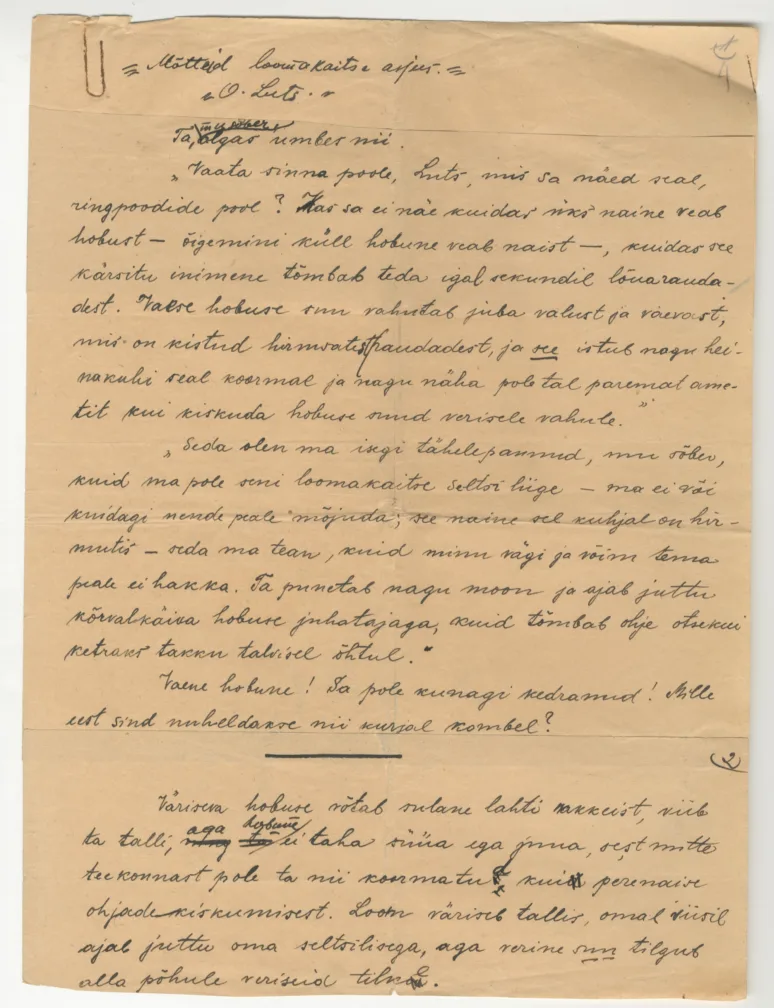 = Mõtteid loomakaitse asjus. =
„ O. Luts. "
mu sõber,
Ta, algas umbes nii.
„Vaata sinna poole, Luts, mis sa näed seal,
ringpoodide pool? Kas sa ei näe kuidas üks naine veab
hobust — õigemini küll hobune veab naist —, kuidas see
kärsitu inimene tõmbab teda igal sekundil lõuarauda-
dest. Vaese hobuse suu vahutab juba valust ja vaevast,
mis on kistud hirmsatest raudadest, ja see istub nagu hei-
nakuhi seal koormal ja nagu näha pole tal paremat ame-
tit kui kiskuda hobuse suud verisele vahule."
„Seda olen ma isegi tähelepannud, mu sõber,
kuid ma pole seni loomakaitse seltsi liige — ma ei või
kuidagi nende peale mõjuda; see naine sel kuhjal on hir-
mutis — seda ma tean, kuid minu vägi ja võim tema
peale ei hakka. Ta punetab nagu moon ja ajab juttu
kõrvalkäiva hobuse juhatajaga, kuid tõmbab ohje otsekui
ketraks takku talvisel õhtul."
Vaene hobune! Sa pole kunagi kedranud! Mille
eest sind nuheldakse nii kurjal kombel?
(2)
Väriseva hobuse võtab sulane lahti rakkeist, viib
aga hobune
ta talli, ning ta ei taha süüa ega juua, sest mitte
teekonnast pole ta nii koormatud, kui perenaise
ohjade kiskumisest. Loom väriseb tallis, omal viisil
ajab juttu oma seltsilisega, aga verine suu tilgub
alla põhule veriseid tilku.